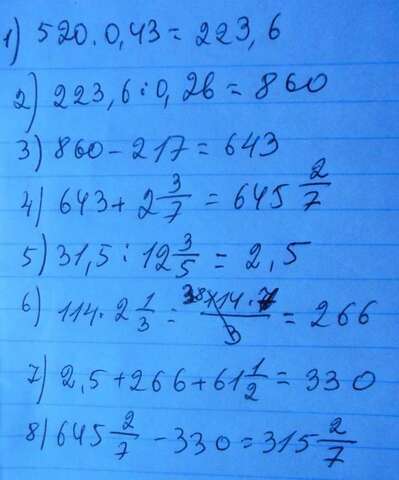 1) 520 . 0,43 = 223,6
2) 223,6 : 0,26 = 860
3) 860 - 217 = 643
4) 643 + 2 3/7 = 645 2/7
5) 31,5 : 12 3/5 = 2,5
6) 114 . 2 1/3 = 38 114 . 7/3 = 266
7) 2,5 + 266 + 61 1/2 = 330
8) 645 2/7 - 330 = 315 2/7